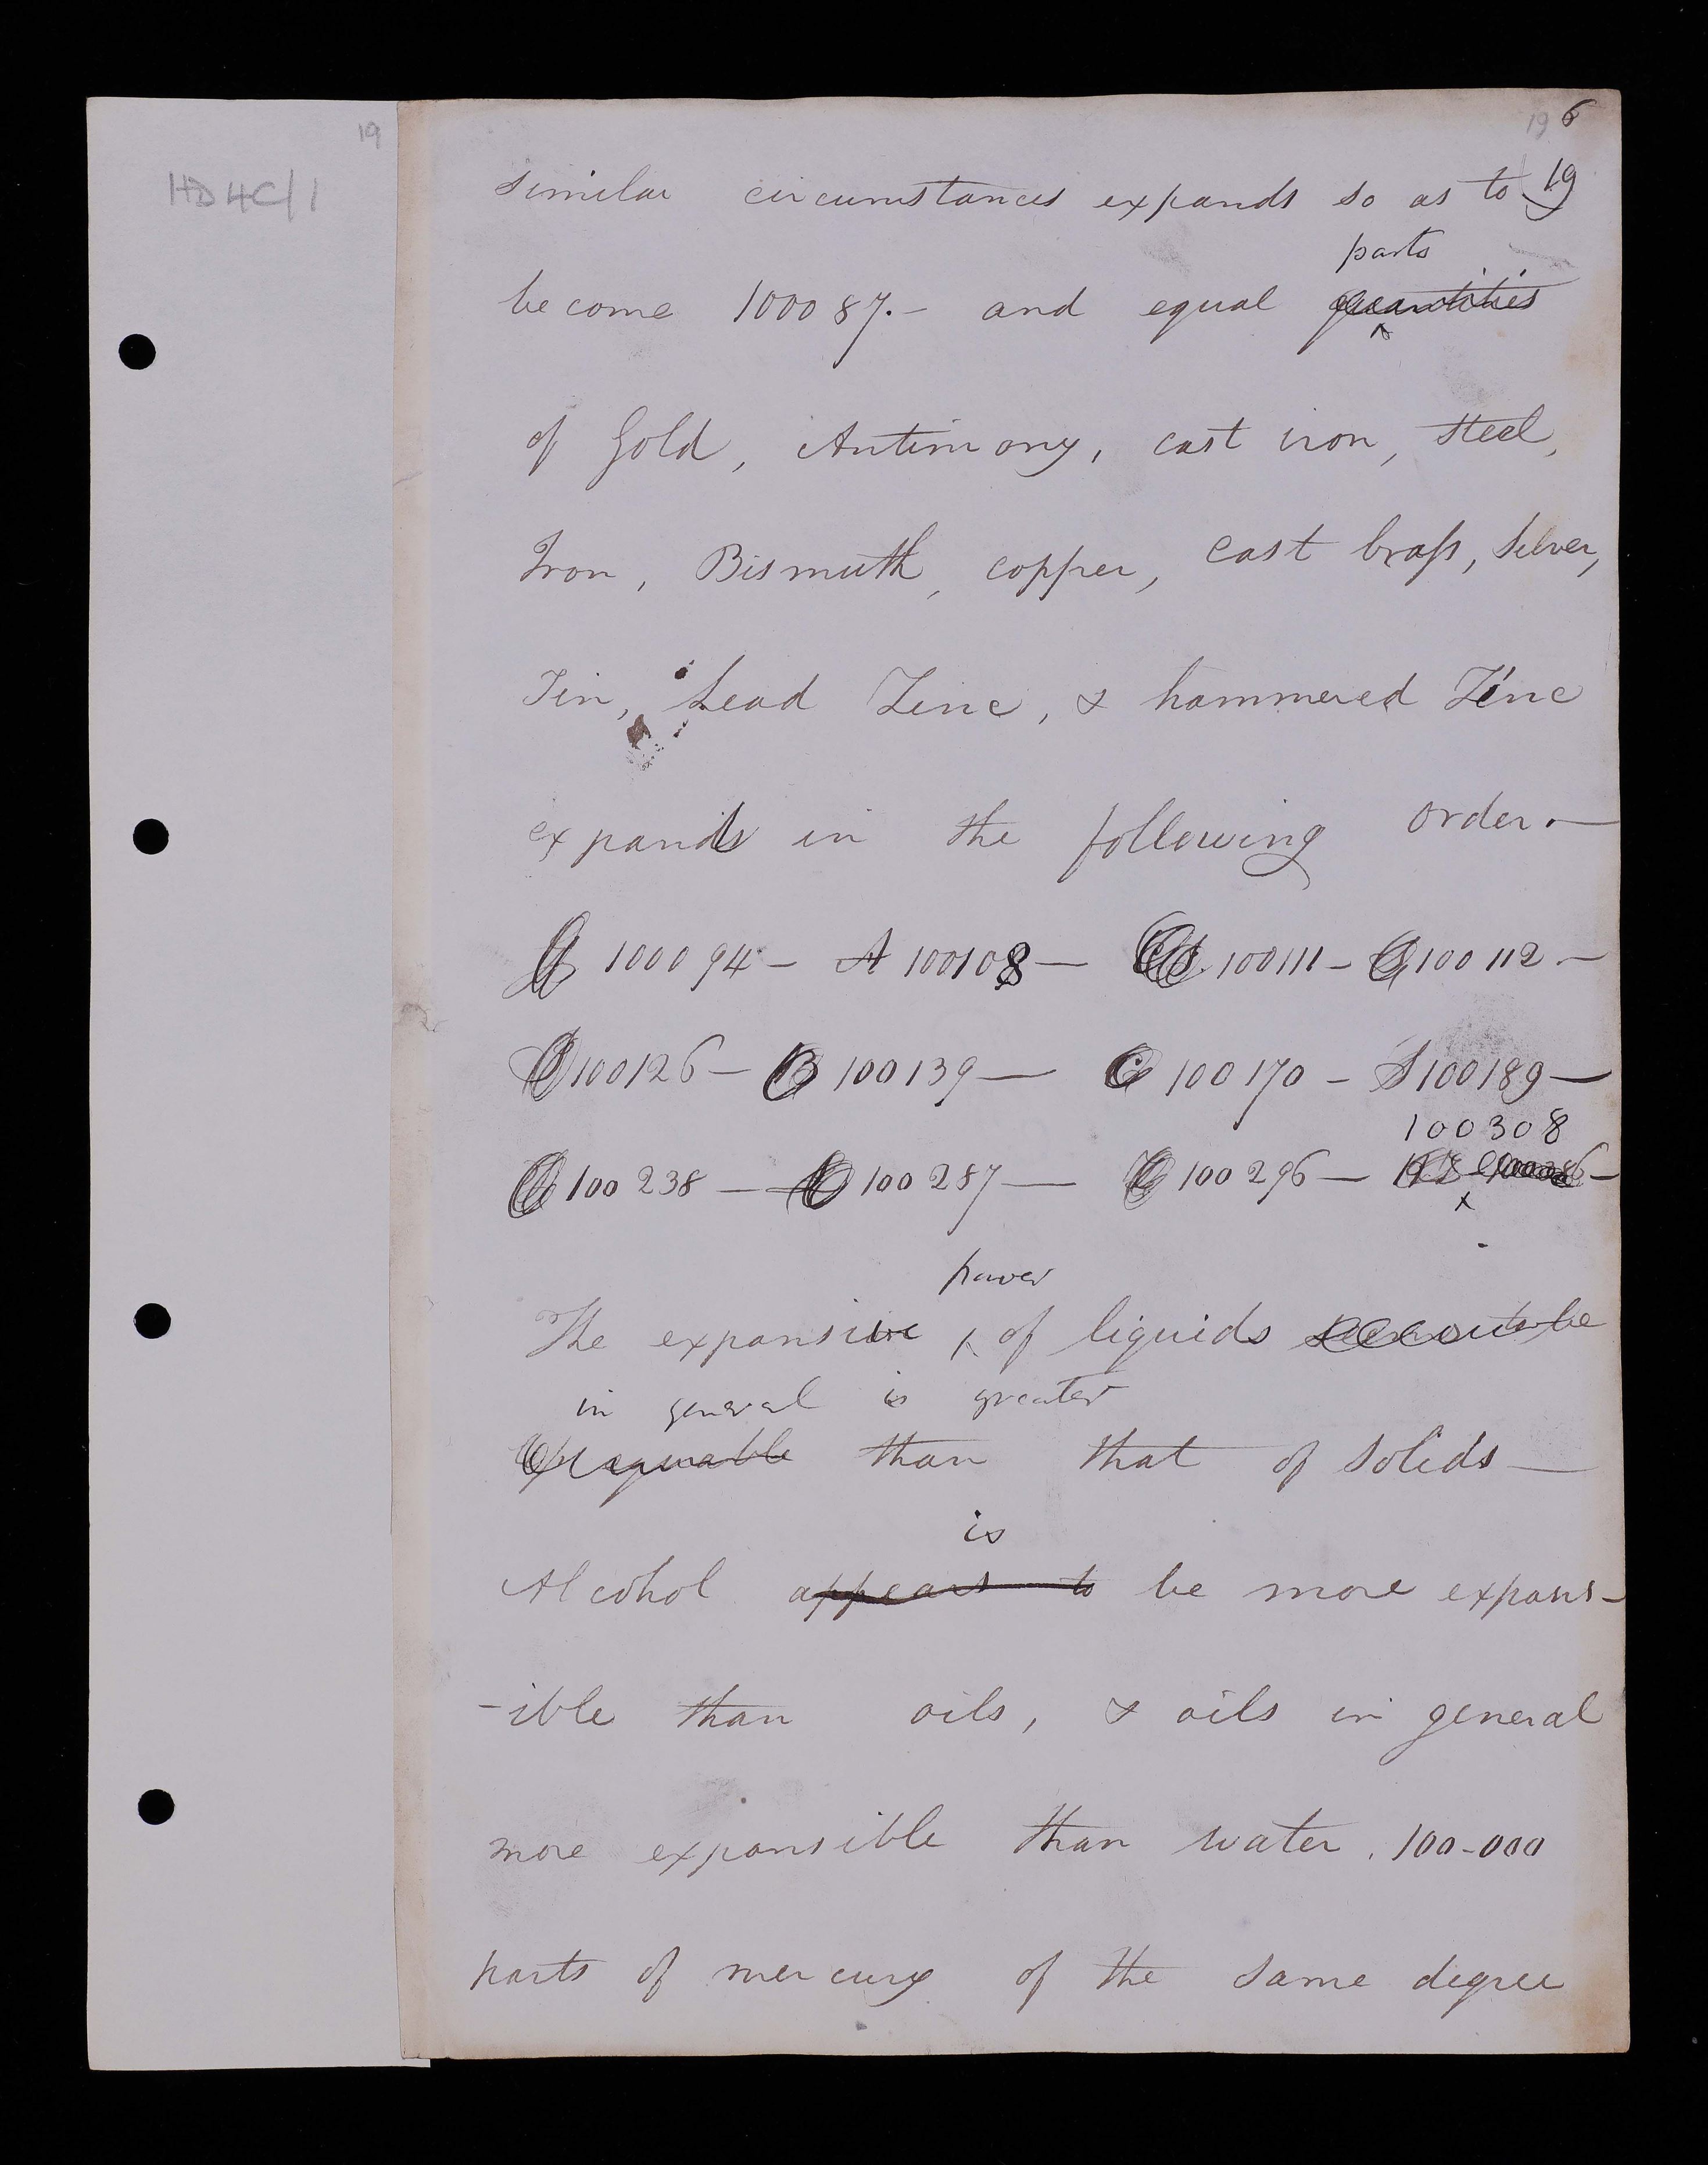 19
HD4C/1
19 6
similar circumstances expands so as to 19
parts
become 100087.- and equal quantities
of Gold, Antimony, cast iron, steel,
Iron, Bismuth, copper, cast braſs, Silver,
Tin, Lead Zinc, & hammered Zinc
expands in the following order.—
100094 - A 100108 — 100111 - 100112 . —
100126 - B 100139 — C 100170 - S 100189 —
100308
100238 — 100287 — 100296 —
power
The expansive ‸ of liquids seems to be
in general is greater
than that of solids —
is
Alcohol appears to be more expans-
-ible than oils, & oils in general
more expansible than water. 100-000
parts of mercury of the same degree